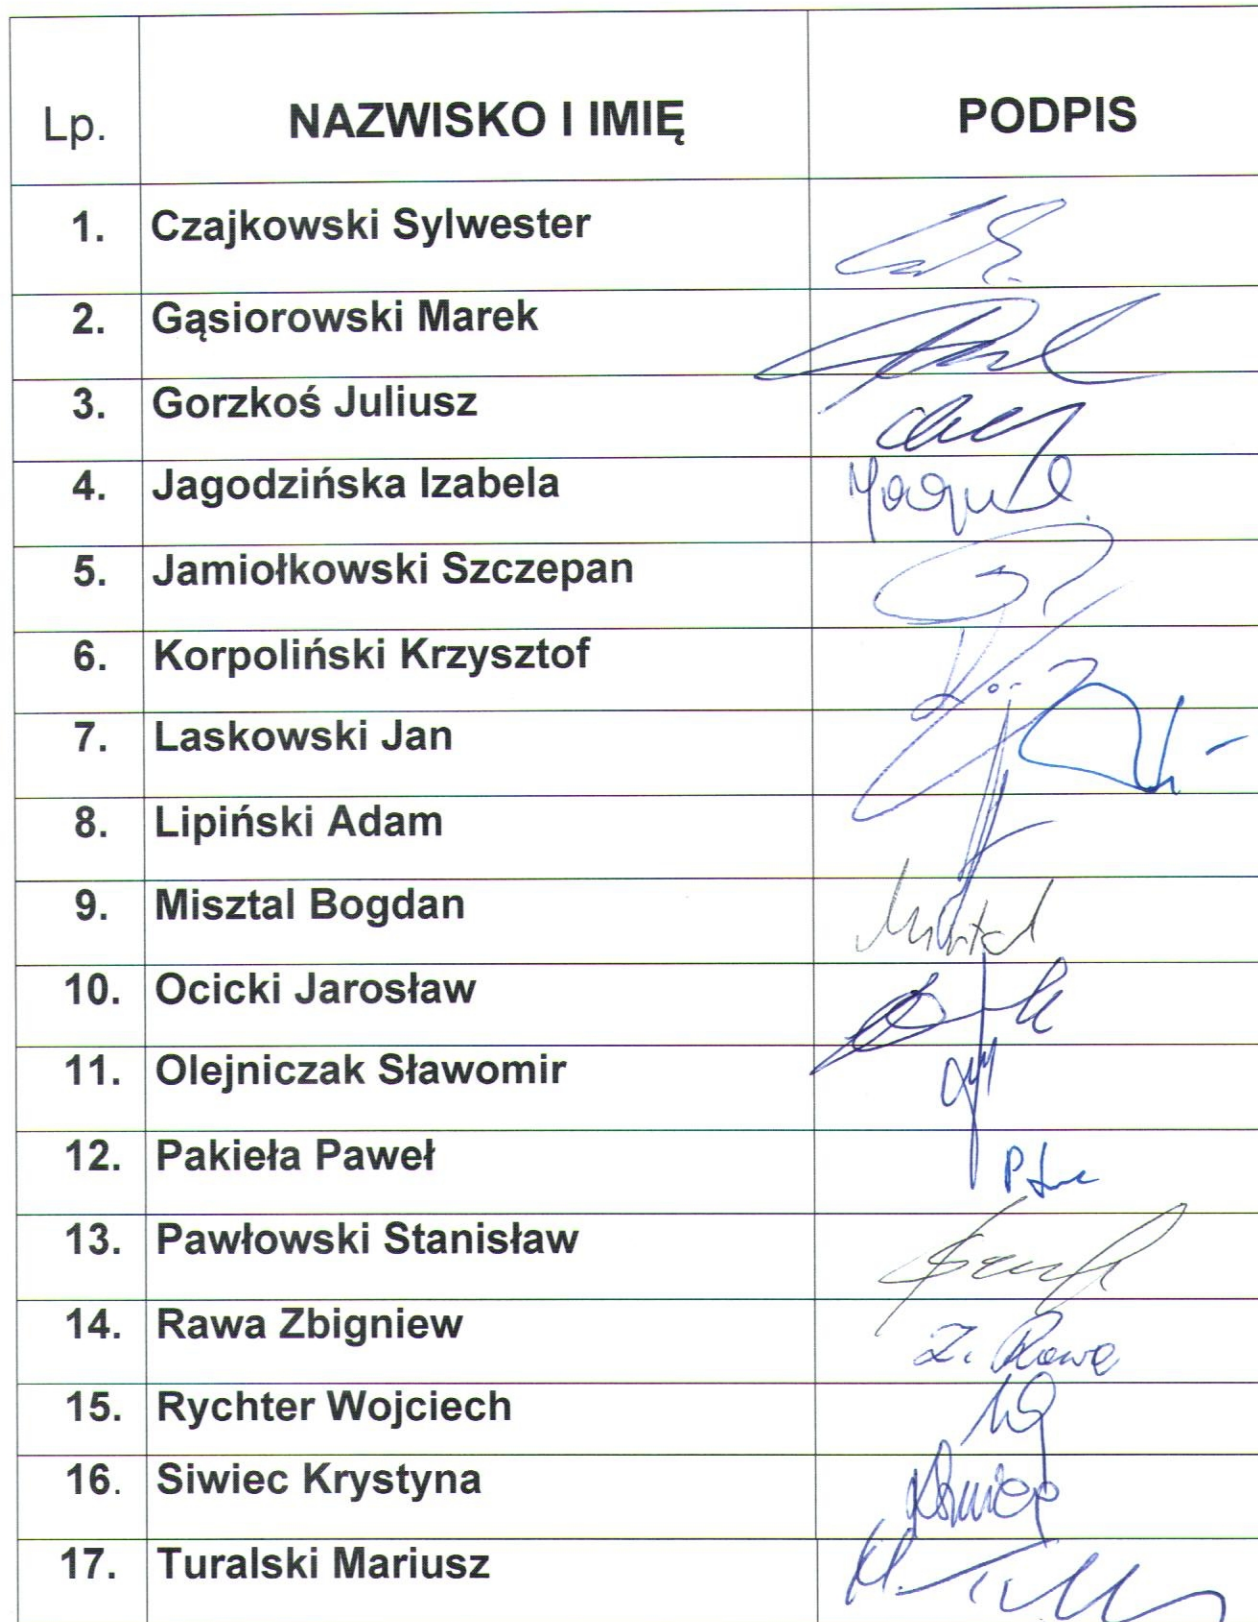 Lp. NAZWISKO I IMIĘ PODPIS
1. Czajkowski Sylwester
2. Gąsiorowski Marek
3. Gorzkoś Juliusz
4. Jagodzińska Izabela
5. Jamiołkowski Szczepan
6. Korpoliński Krzysztof
7. Laskowski Jan
8. Lipiński Adam
9. Misztal Bogdan Misztal
10. Ocicki Jarosław
11. Olejniczak Sławomir
12. Pakieła Paweł
13. Pawłowski Stanisław
14. Rawa Zbigniew Z. Rawa
15. Rychter Wojciech
16. Siwiec Krystyna
17. Turalski Mariusz